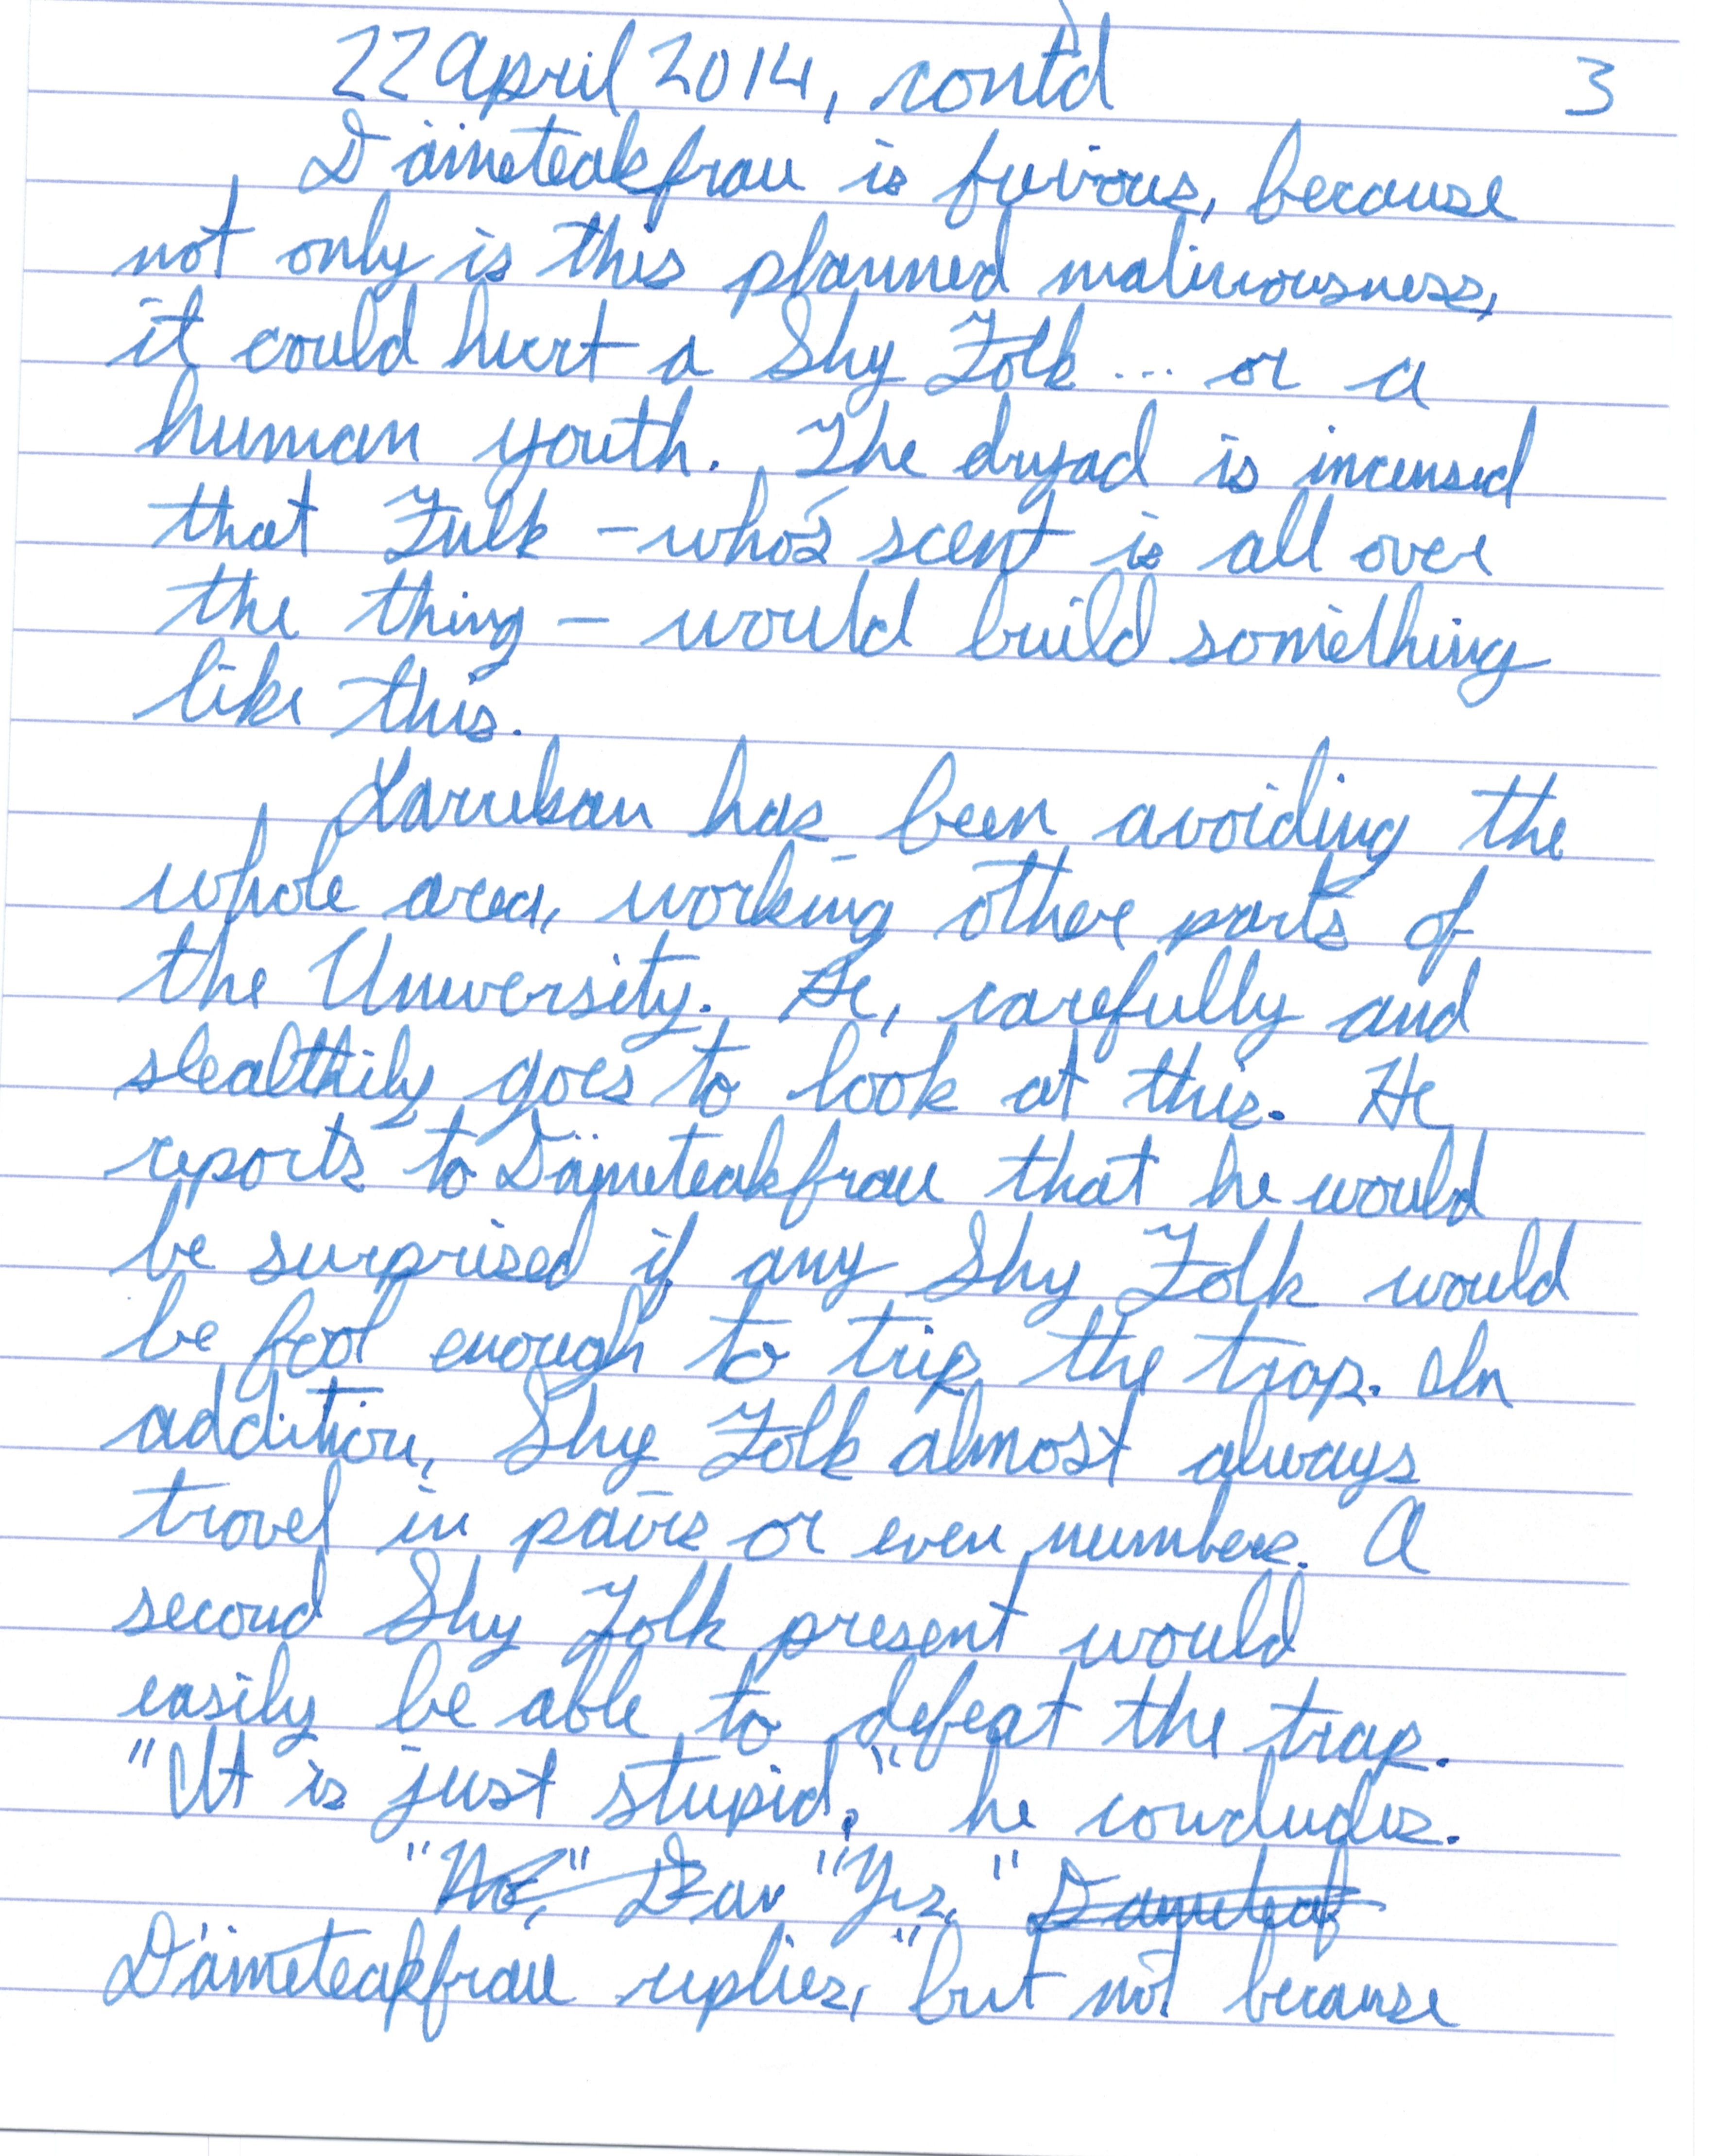 22 April 2014, contd 3
Dämeteakfrau is furious, because
not only is this planned maliciousness,
it could hurt a Shy Folk ... or a
human youth. The dryad is incensed
that Fulk - who's scent is all over
the thing - would build something
like this.
Larrekan has been avoiding the
whole area, working other parts of
the University. He, carefully and
stealthily goes to look at this. He
reports to Dämeteakfrau that he would
be surprised if any Shy Folk would
be fool enough to trip the trap. In
addition, Shy Folk almost always
travel in pairs or even numbers. A
second Shy Folk present would
easily be able to defeat the trap.
"It is just stupid," he concludes.
"No," Dav "Yes," Dameteak
Dämeteakfrau replies, "but not because